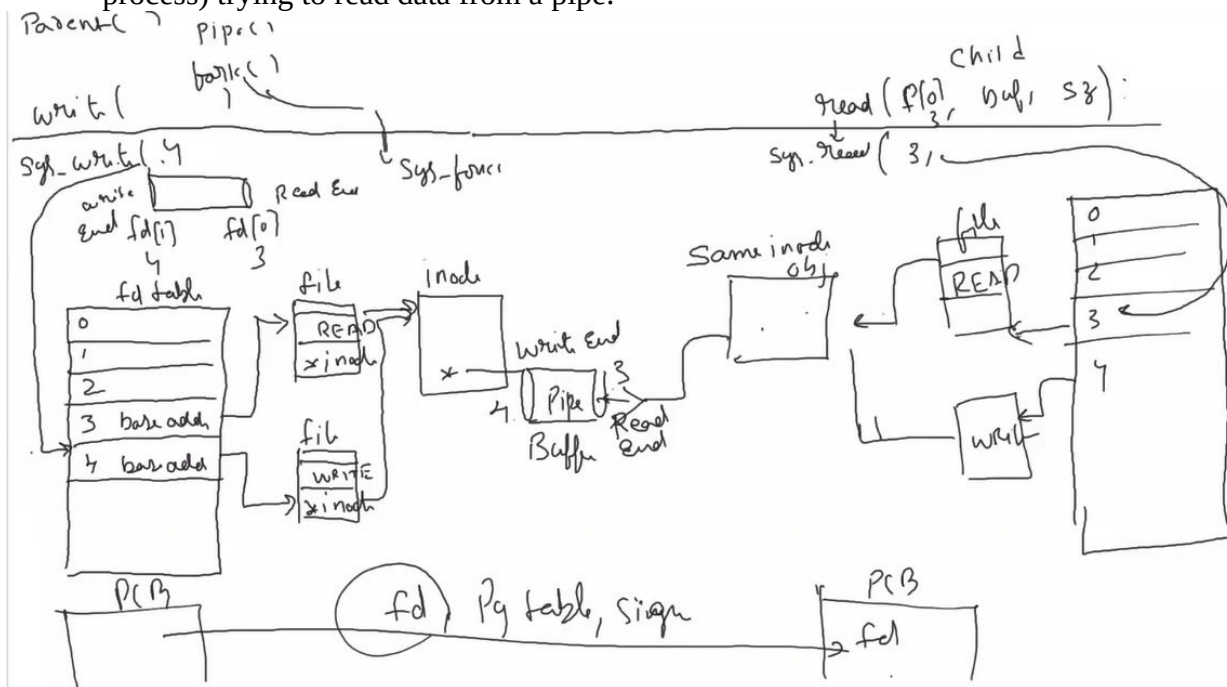 process) trying to read data from a pipe.
Parent( )
pipe()
fork()
)
write(
Child
read(f[0], buf, sz):
3
sys_write(.4
sys_read( 3,
write End
Read End
fd[1]
fd[0]
4
3
fd table
0
1
2
3 base addr
4 base add
file
READ
*inode
file
WRITE
*inode
inode
*
Write End
4
Pipe
3
Read End
Buffer
Same inode obj
file
READ
WRITE
0
1
2
3
4
PCB
fd, Pg table, sign
PCB
fd